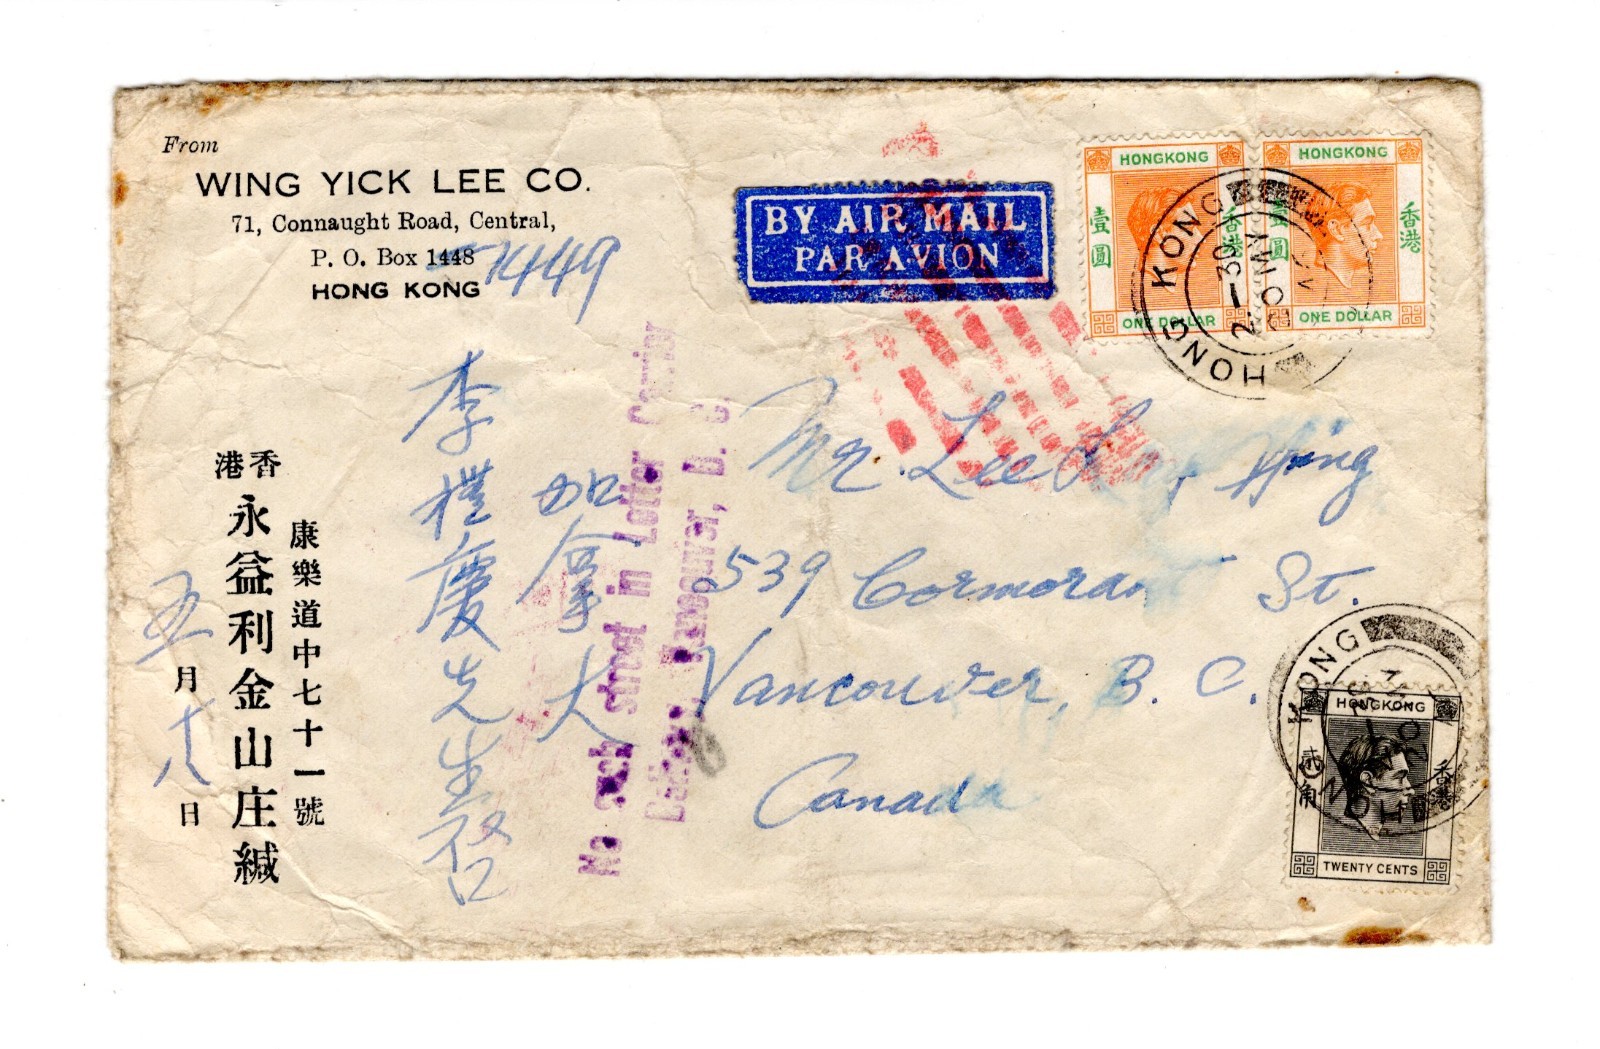 From
WING YICK LEE CO.
71, Connaught Road, Central,
P. O. Box 1448
1449
HONG KONG
BY AIR MAIL
PAR AVION
HONGKONG
壹圓
香港
ONE DOLLAR
HONGKONG
壹圓
香港
ONE DOLLAR
HONG KONG
2.-30
Mr. Lee Hing
539 Cormorant St.
Vancouver, B. C.
Canada
No such street in Letter Carrier
Vancouver, B. C.
加拿大
李 慶先生啓
香港
康樂道中七十一號
永益利金山庄緘
五月十八日
HONG KONG
HONGKONG
貳角
香港
TWENTY CENTS